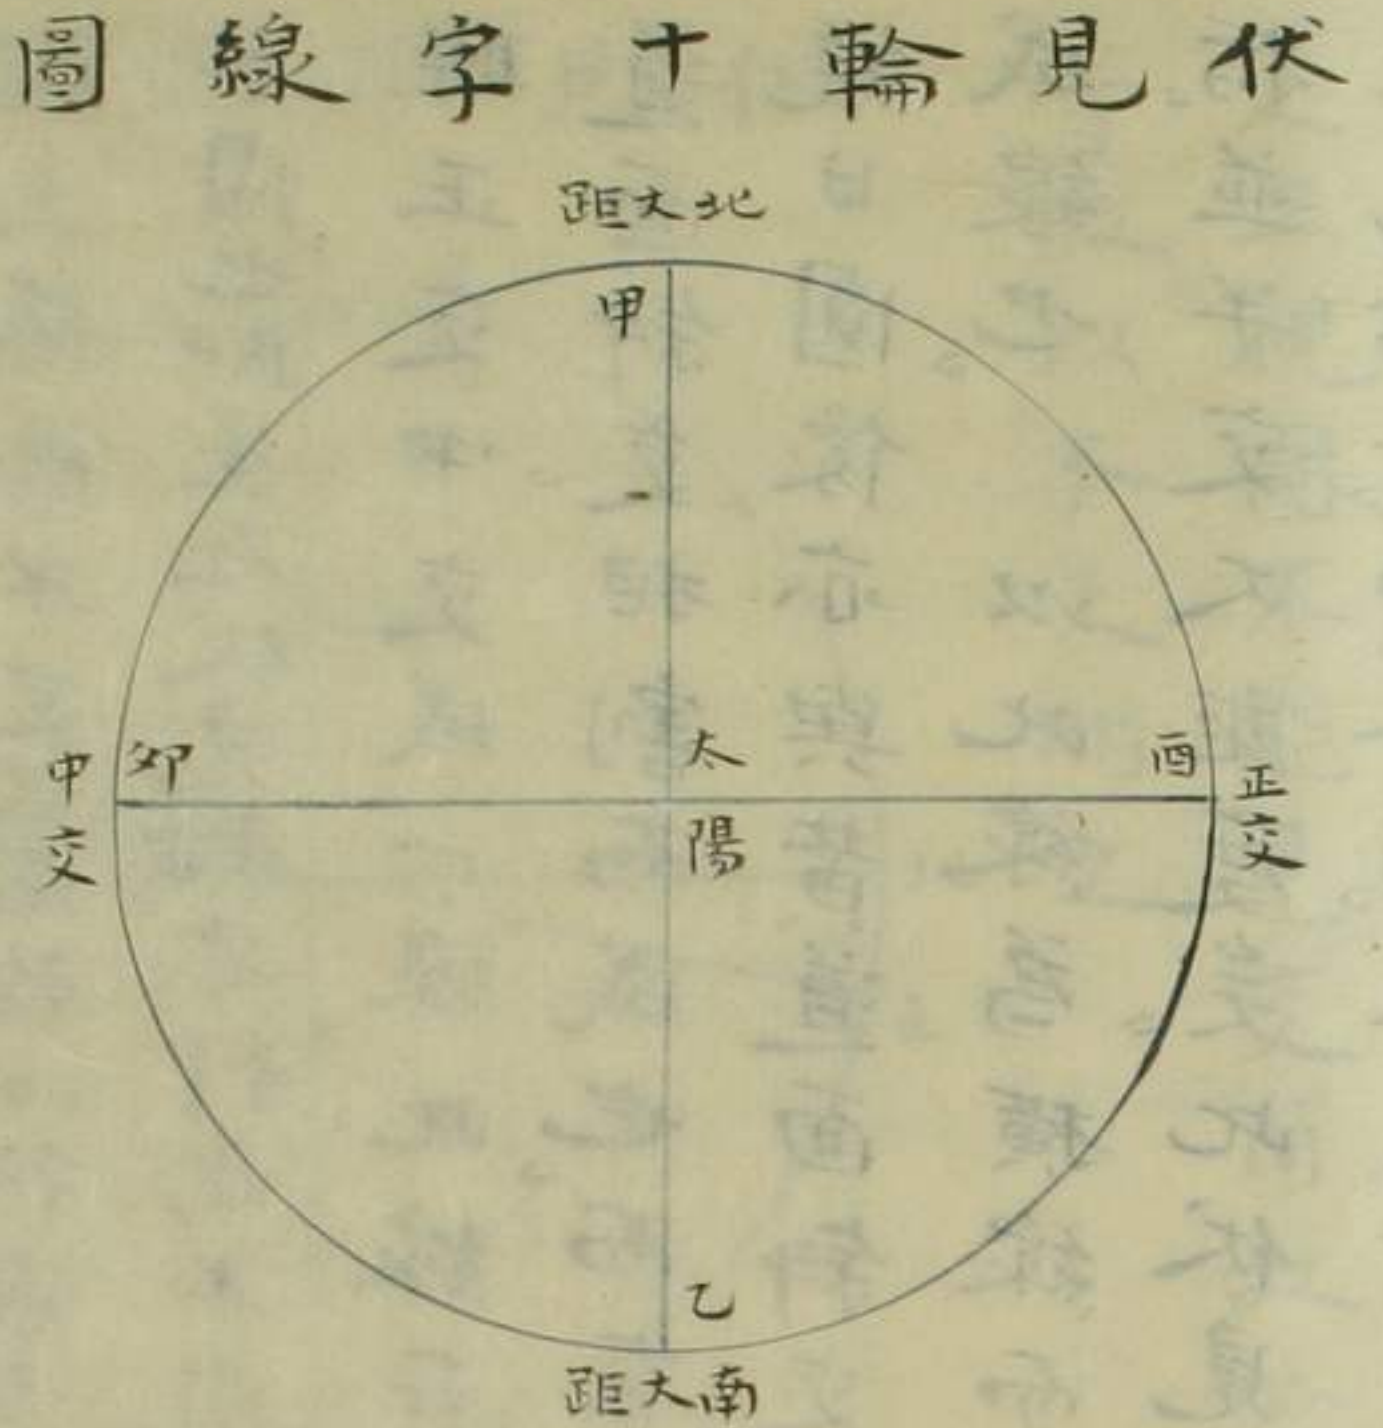 伏見輪十字線圖
北大距
甲
卯
中交
太陽
酉
正交
乙
南大距